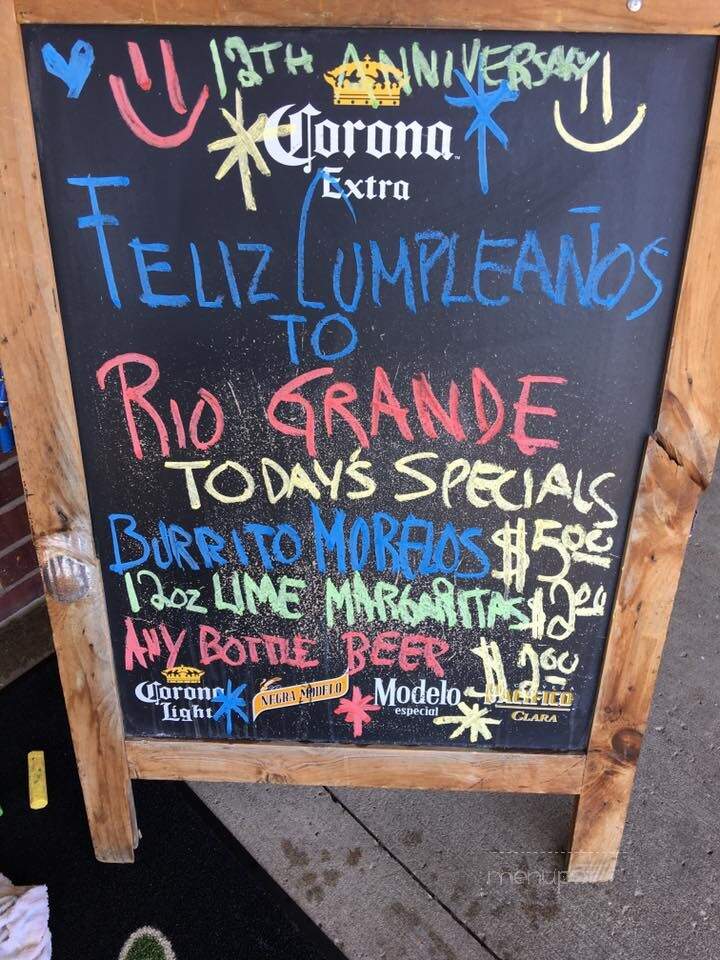 12TH ANNIVERSARY
Corona
Extra
FELIZ CUMPLEAÑOS
TO
RIO GRANDE
TODAY'S SPECIALS
BURRITO MORELOS $5.00
12oz LIME MARGARITAS $2.00
ANY BOTTLE BEER $2.00
Corona Light NEGRA MODELO Modelo especial PACIFICO CLARA
menupix